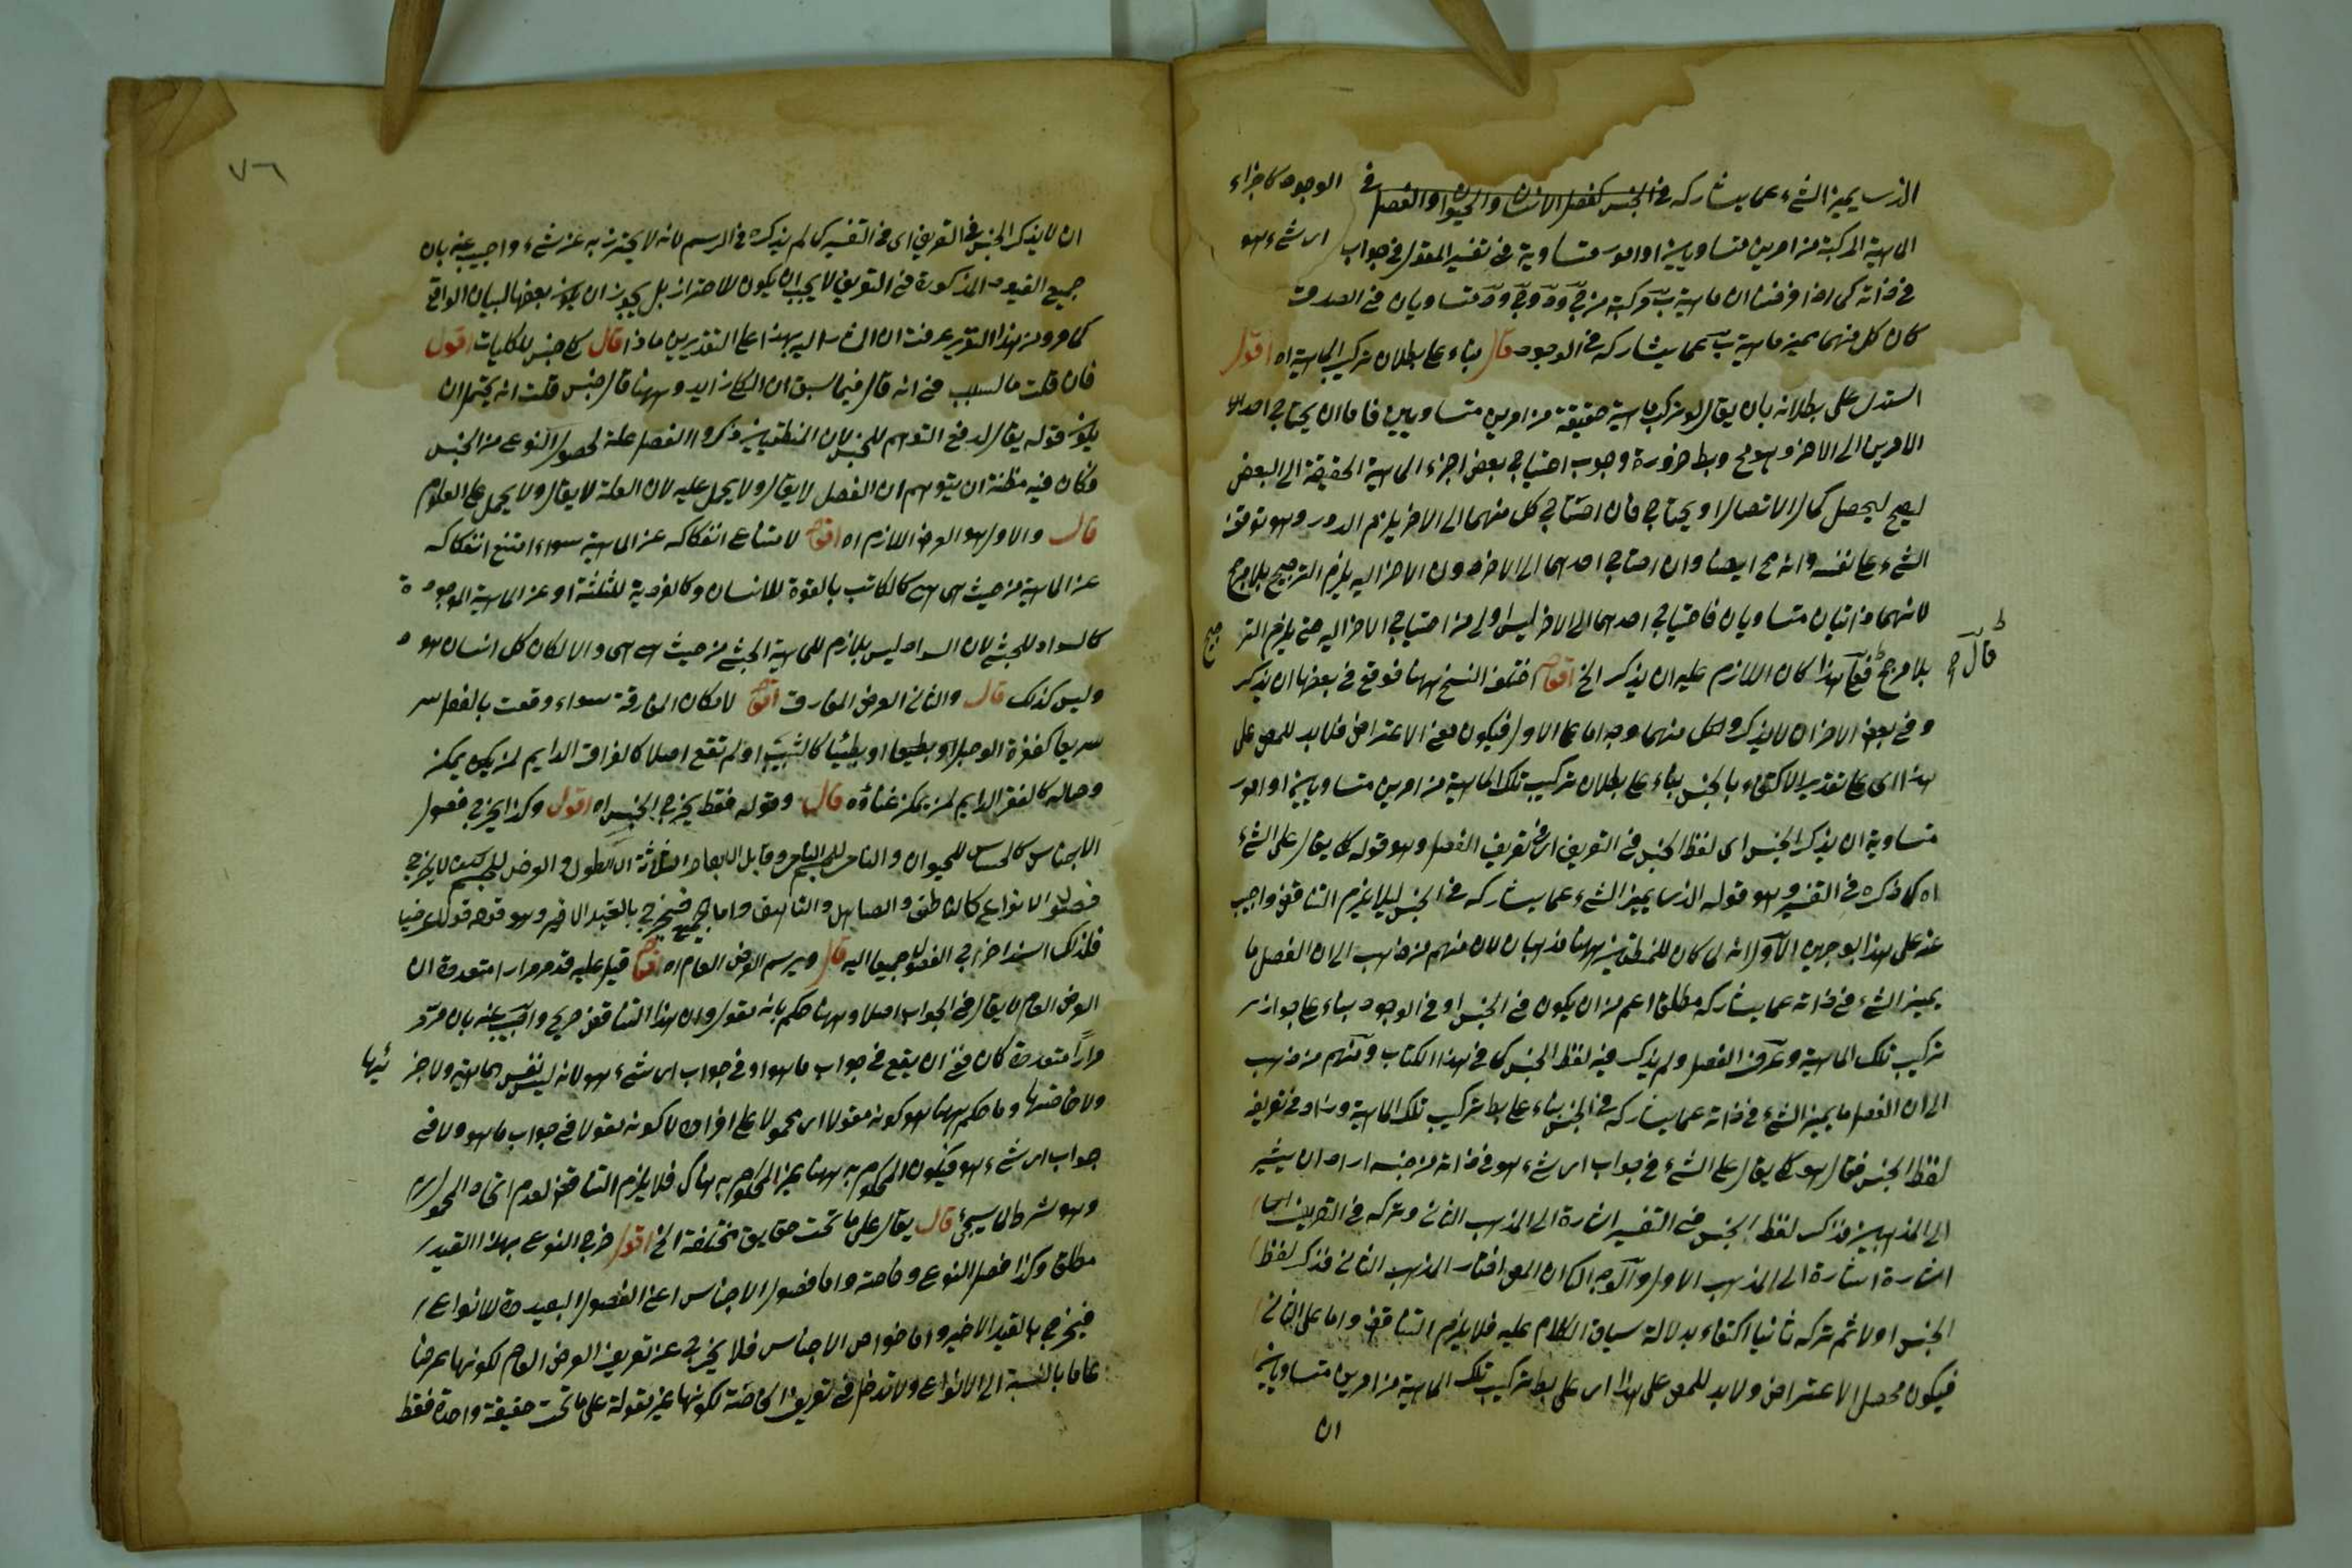 الذى يميز الشئ عما يشاركه فى الجنس كفصل الانسان والحيوان او الفصل فى الوجود كاجزاء
الماهية المركبة من امرين متساويين او امور متساوية فى تفسير المقول فى جواب اى شئ هو
فى ذاته كما اذا فرضنا ان ماهية ب مركبة من ج ود وج ود متساويان فى الصدق
كان كل منهما يميز ماهية ب عما يشاركه فى الوجود قال بناء على بطلان تركيب الماهية اه اقول
استدل على بطلانه بان يقال لو تركب ماهية حقيقة من امرين متساويين فاما ان يحتاج احد
الامرين الى الاخر وهو مح وبط ضرورة وجوب احتياج بعض اجزاء الماهية الحقيقة الى البعض
ليصح ليحصل كمال الاتصال او يحتاج فان احتاج كل منهما الى الاخر يلزم الدور وهو توقف
الشئ على نفسه وانه مح ايضا وان احتاج احدهما الى الاخر دون الاخر اليه يلزم الترجيح بلا مرجح
لانهما ذاتيان متساويان فاحتياج احدهما الى الاخر ليس اولى من احتياج الاخر اليه حتى يلزم التر جيح
بلا مرجح فعلى هذا كان اللازم عليه ان يذكر الخ اقول اختلف النسخ ههنا فوقع فى بعضها ان يذكر
قال
وفى بعض الاخر ان لا يذكر ولكل منهما وجه اما على الاول فيكون معنى الاعتراض فلا بد للمص على
هذا اى على تقدير الاكتفاء بالجنس بناء على بطلان تركيب تلك الماهية من امرين متساويين او امور
متساوية ان يذكر الجنس اى لفظ الجنس فى التعريف اى فى تعريف الفصل وهو قوله كلى يقال على الشئ
اه كما ذكره فى التفسير وهو قوله الذى يميز الشئ عما يشاركه فى الجنس ليلا يلزم التناقض واجيب
عنه على هذا بوجهين الاول انه لما كان للمنطقيين ههنا مذهبان لان منهم من ذهب الى ان الفصل ما
يميز الشئ فى ذاته عما يشاركه مطلقا اعم من ان يكون فى الجنس او فى الوجود بناء على جواز
تركيب تلك الماهية وعرف الفصل ولم يذكر فيه لفظ الجنس كما فى هذا الكتاب ومنهم من ذهب
الى ان الفصل ما يميز الشئ فى ذاته عما يشاركه فى الجنس بناء على بط تركيب تلك الماهية وزاد فى تعريفه
لفظ الجنس فقال هو كلى يقال على الشئ فى جواب اى شئ هو فى ذاته من جنسه اراد ان يشير
الى المذهبين فذكر لفظ الجنس فى التفسير اشارة الى المذهب الثانى وتركه فى التعريف
اشارة الى المذهب الاول والوجه الثانى ان المص اختار المذهب الثانى فذكر لفظ
الجنس اولا ثم تركه ثانيا اكتفاء بدلالة سياق الكلام عليه فلا يلزم التناقض واما على الثانى
فيكون محصل الاعتراض ولا بد للمص على هذا اى على بط تركيب تلك الماهية من امرين متساويين
ان
٧٦
ان لا يذكر الجنس فى التعريف اى فى التفسير كما لم يذكره فى الرسم لانه لا يحترز به عن شئ واجيب عنه بان
جميع القيود المذكورة فى التعريف لا يجب ان يكون للاحتراز بل يجوز ان يكون بعضها لبيان الواقع
كما مر ومن هذا التقرير عرفت ان المشار اليه بهذا على التقديرين ماذا قال كلى جنس للكليات اقول
فان قلت ما السبب فى انه قال فيما سبق ان الكلى زايد وههنا قال جنس قلت انه يحتمل ان
يكون قوله يقال لدفع التوهم للجنس لان المنطقيين ذكروا الفصل علة لحصول النوع من الجنس
فكان فيه مظنة ان يتوهم ان الفصل لا يقال ولا يحمل عليه لان العلة لا يقال ولا يحمل على المعلوم
قال والاول هو العرض اللازم اه اقول لامتناع انفكاكه عن الماهية سواء امتنع انفكاكه
عن الماهية من حيث هى هى كالكاتب بالقوة للانسان وكالفردية للثلثة او عن الماهية الموجودة
كالسواد للحبشى لان السواد ليس بلازم للماهية الحبشى من حيث هى هى والا لكان كل انسان اسود
وليس كذلك قال والثانى العرض المفارق اقول لامكان المفارقة سواء وقعت بالفعل
سريعا كفزة الوجل او بطيئا كالشيب او لم تقع اصلا كالفراق الدايم لمن يكون يمكن
وصاله كالفقر الدايم لمن يمكن غناؤه قال وقوله فقط يخرج الجنس اه اقول وكذا يخرج فصول
الاجناس كالحساس للحيوان والنامى للجسم النامى وقابل الابعاد الثلاثة اى الطول والعرض للجسم لا يخرج
فصول الانواع كالناطق والصاهل والناهق واما فيخرج بالقيد الاخير وهو قوله قولا عرضيا
فلذلك اسند اخراج الفصول جميعا اليه قال ويرسم العرض العام اه اقول قيل عليه قد مر مرارا متعددة ان
العرض العام لا يقال فى الجواب اصلا وههنا حكم بانه مقول وان هذا التناقض صريح واجيب عنه بان مر
مرارا متعددة كان نفى ان يقع فى جواب ما هو او فى جواب اى شئ هو لانه ليس نفس الماهية ولا جز ئيها
ولا خاصتها وما حكم ههنا هو كونه مقولا اى محمولا على افراده لا كونه مقولا فى جواب ما هو ولا فى
جواب اى شئ هو فيكون المحكوم به ههنا غير المحكوم به هناك فلا يلزم التناقض لعدم اتحاد المحمول
وهو شرط كما سيجئ قال يقال على ما تحت حقايق مختلفة الخ اقول خرج النوع بهذا القيد
مطلقا وكذا فصل النوع وخاصته واما فصول الاجناس اعنى الفصول البعيدة للانواع
فيخرج بالقيد الاخير واما خواص الاجناس فلا يخرج عن تعريف العرض العام لكونها عرضا
عاما بالنسبة الى الانواع ولا تدخل فى تعريف الخاصة لكونها غير مقولة على ما تحت حقيقة واحدة فقط